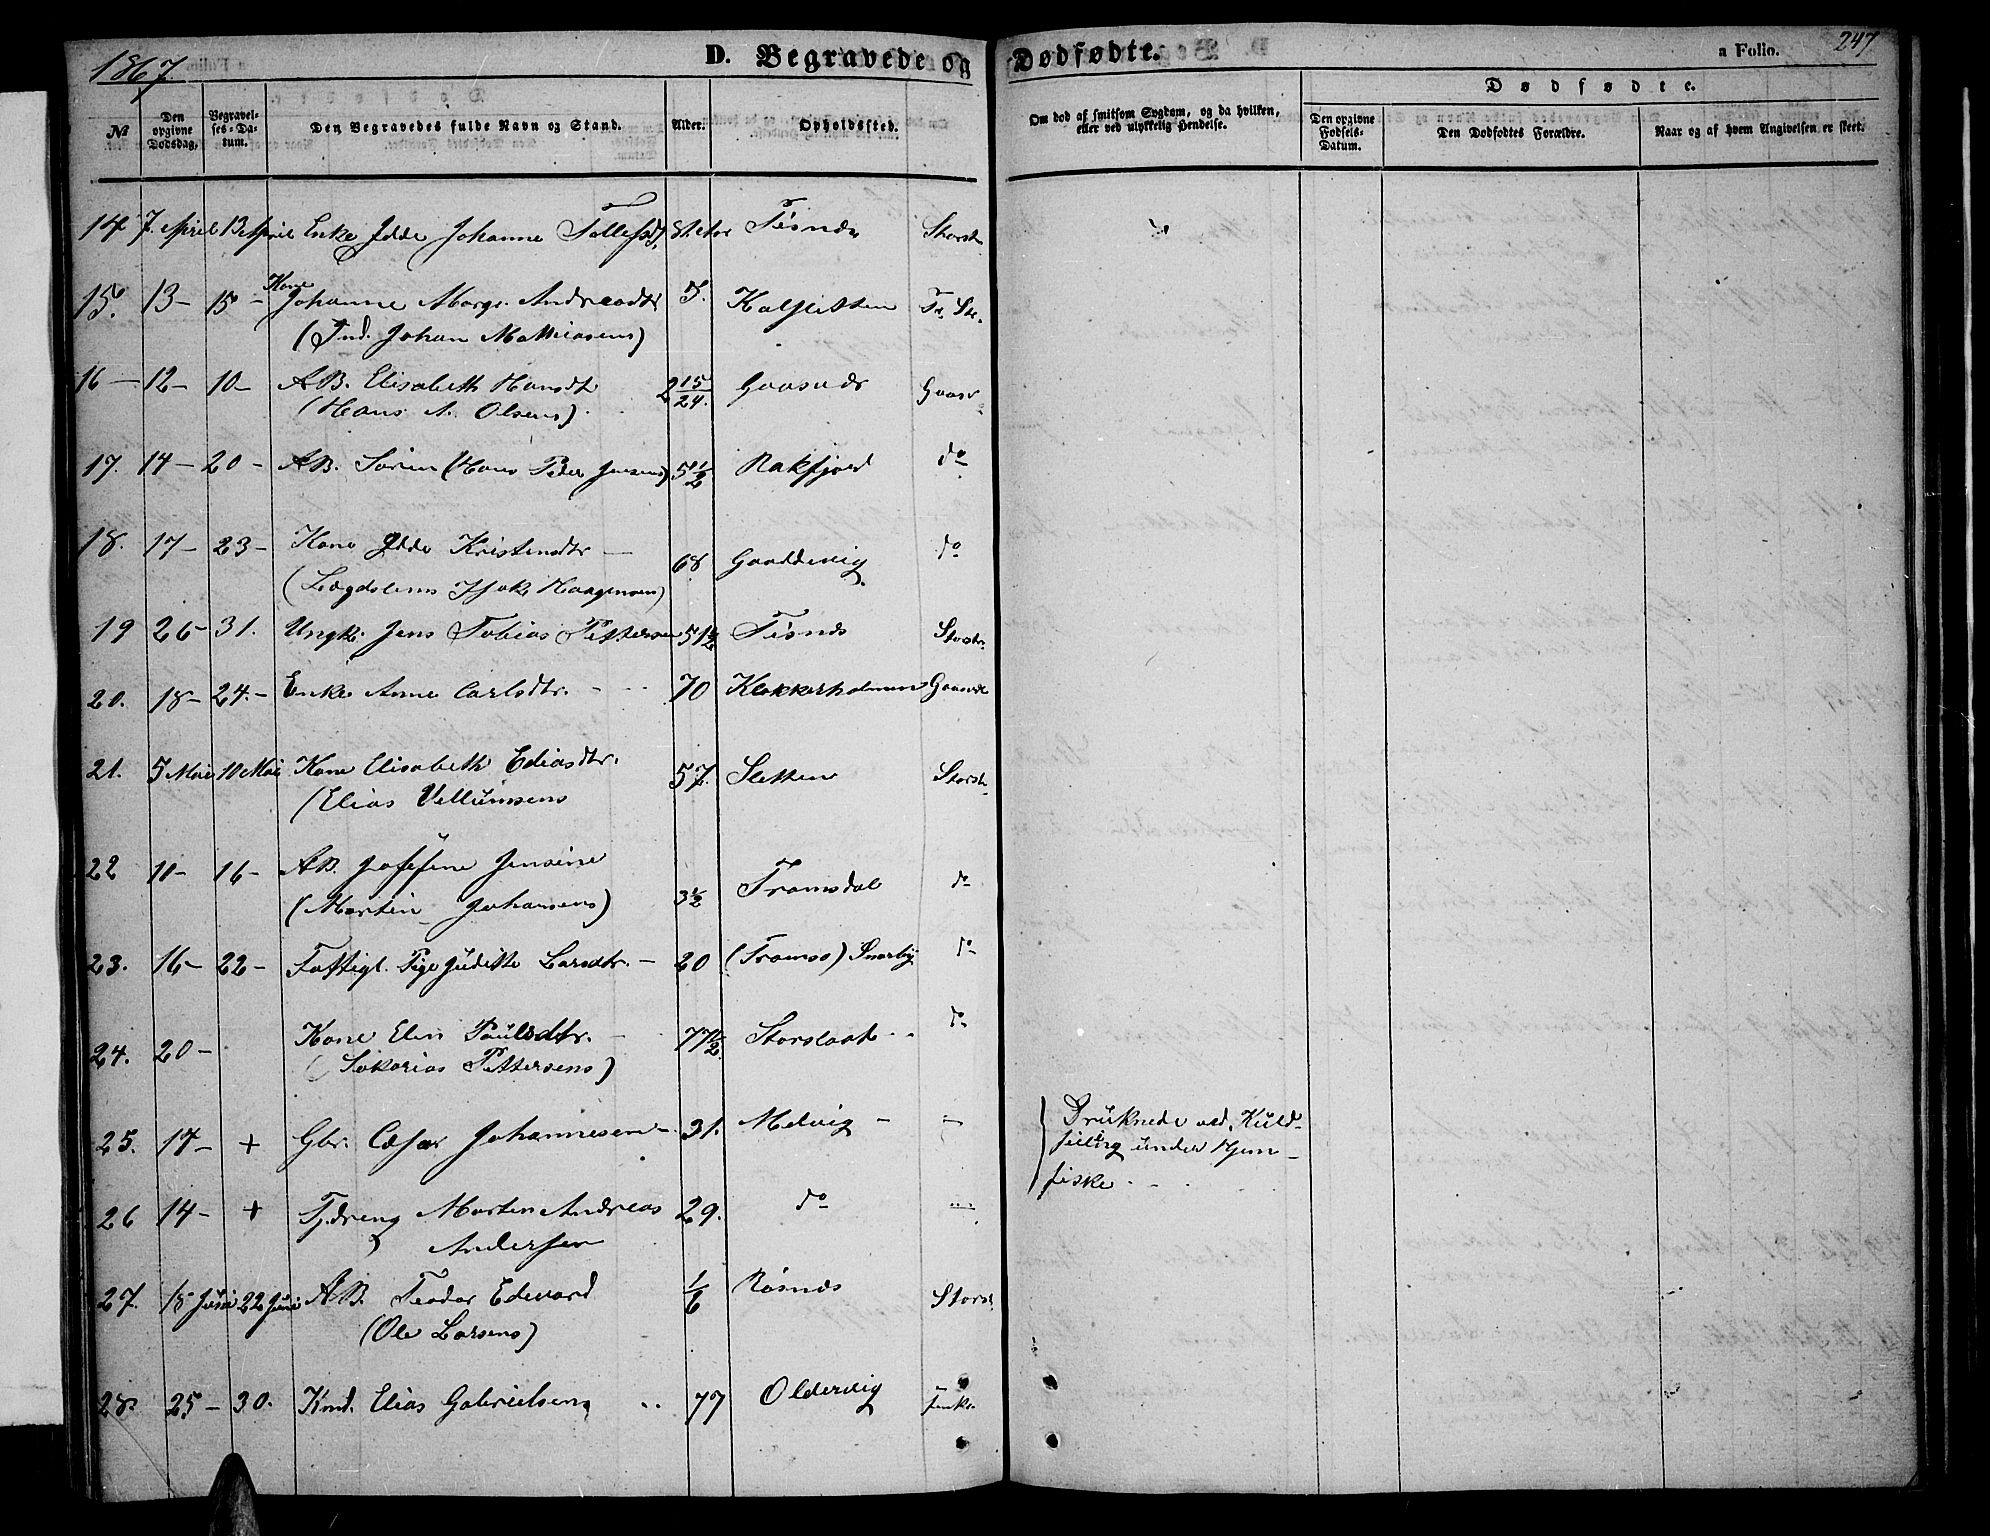 1867.
D. Begravede og Dødfødte.
a Folio. 247
№
Den opgivne Dødsdag,
Begravelses-Datum.
Den Begravedes fulde Navn og Stand.
Alder.
Opholdssted.
Om død af smitsom Sygdom, og da hvilken, eller ved ulykkelig Hendelse.
Dødfødte.
Den opgivne Fødsels-Datum.
Den Dødfødtes Forældre.
Naar og af hvem Angivelsen er skeet.
14 7. April 13 April Enke Idde Johanne Tollefsdtr Tisnæs Storst
15. 13 – 15 – Kone Johanne Marg. Andreasdtr Kalfletten
(Ind. Johan Mathiasens)
16 – 12 – 10 – AB. Elisabeth Hansdt 2 15/24. Gaasnæs Gaasv
(Hans A. Olsens)
17. 14 – 20 – AB. Søren (Hans Peder Jensens) 5 1/2 Rakfjord do
18. 17 – 23 – Kone Idde Kristensdtr – 68 do
(Lægdslems Isak Haagensen)
19 26 – 31. Ungk. Jens Tobias Pettersen 51 1/2 Tisnæs Storst.
20. 18 – 24. – Enke Anne Carlsdtr. 70 Klokkerholmen Gaasv
21. 5 Mai 10 Mai Kone Elisabeth Ediasdtr. 57 Sletten Storst.
(Elias Vellumsens
22 11 – 16 – AB. Josefine Jensine 3 1/2 Tromsdal do
(Martin Johansens)
23. 16 – 22 – Fattigl. Pige Juditte Larsdtr. – 20 (Tromsø) Snarby do
24. 20 – Kone Elen Paulsdtr. 77 1/2 Storslaat do
(Sakarias Pettersens)
25. 17 – + Gbr. Cæsar Johannesen – 31. Melvig – – Druknede ved Kuld-
seiling under Hjem-
fiske
26 14 – + Tjdreng Morten Andreas 29. do
Andersen
27. 18 Juni 22 Juni AB. Teodor Edevard 1/6 Røsnæs Storst
(Ole Larsens)
28. 25 – 30. Knd. Elias Gabrielsen 77 Oldervig Jenke.